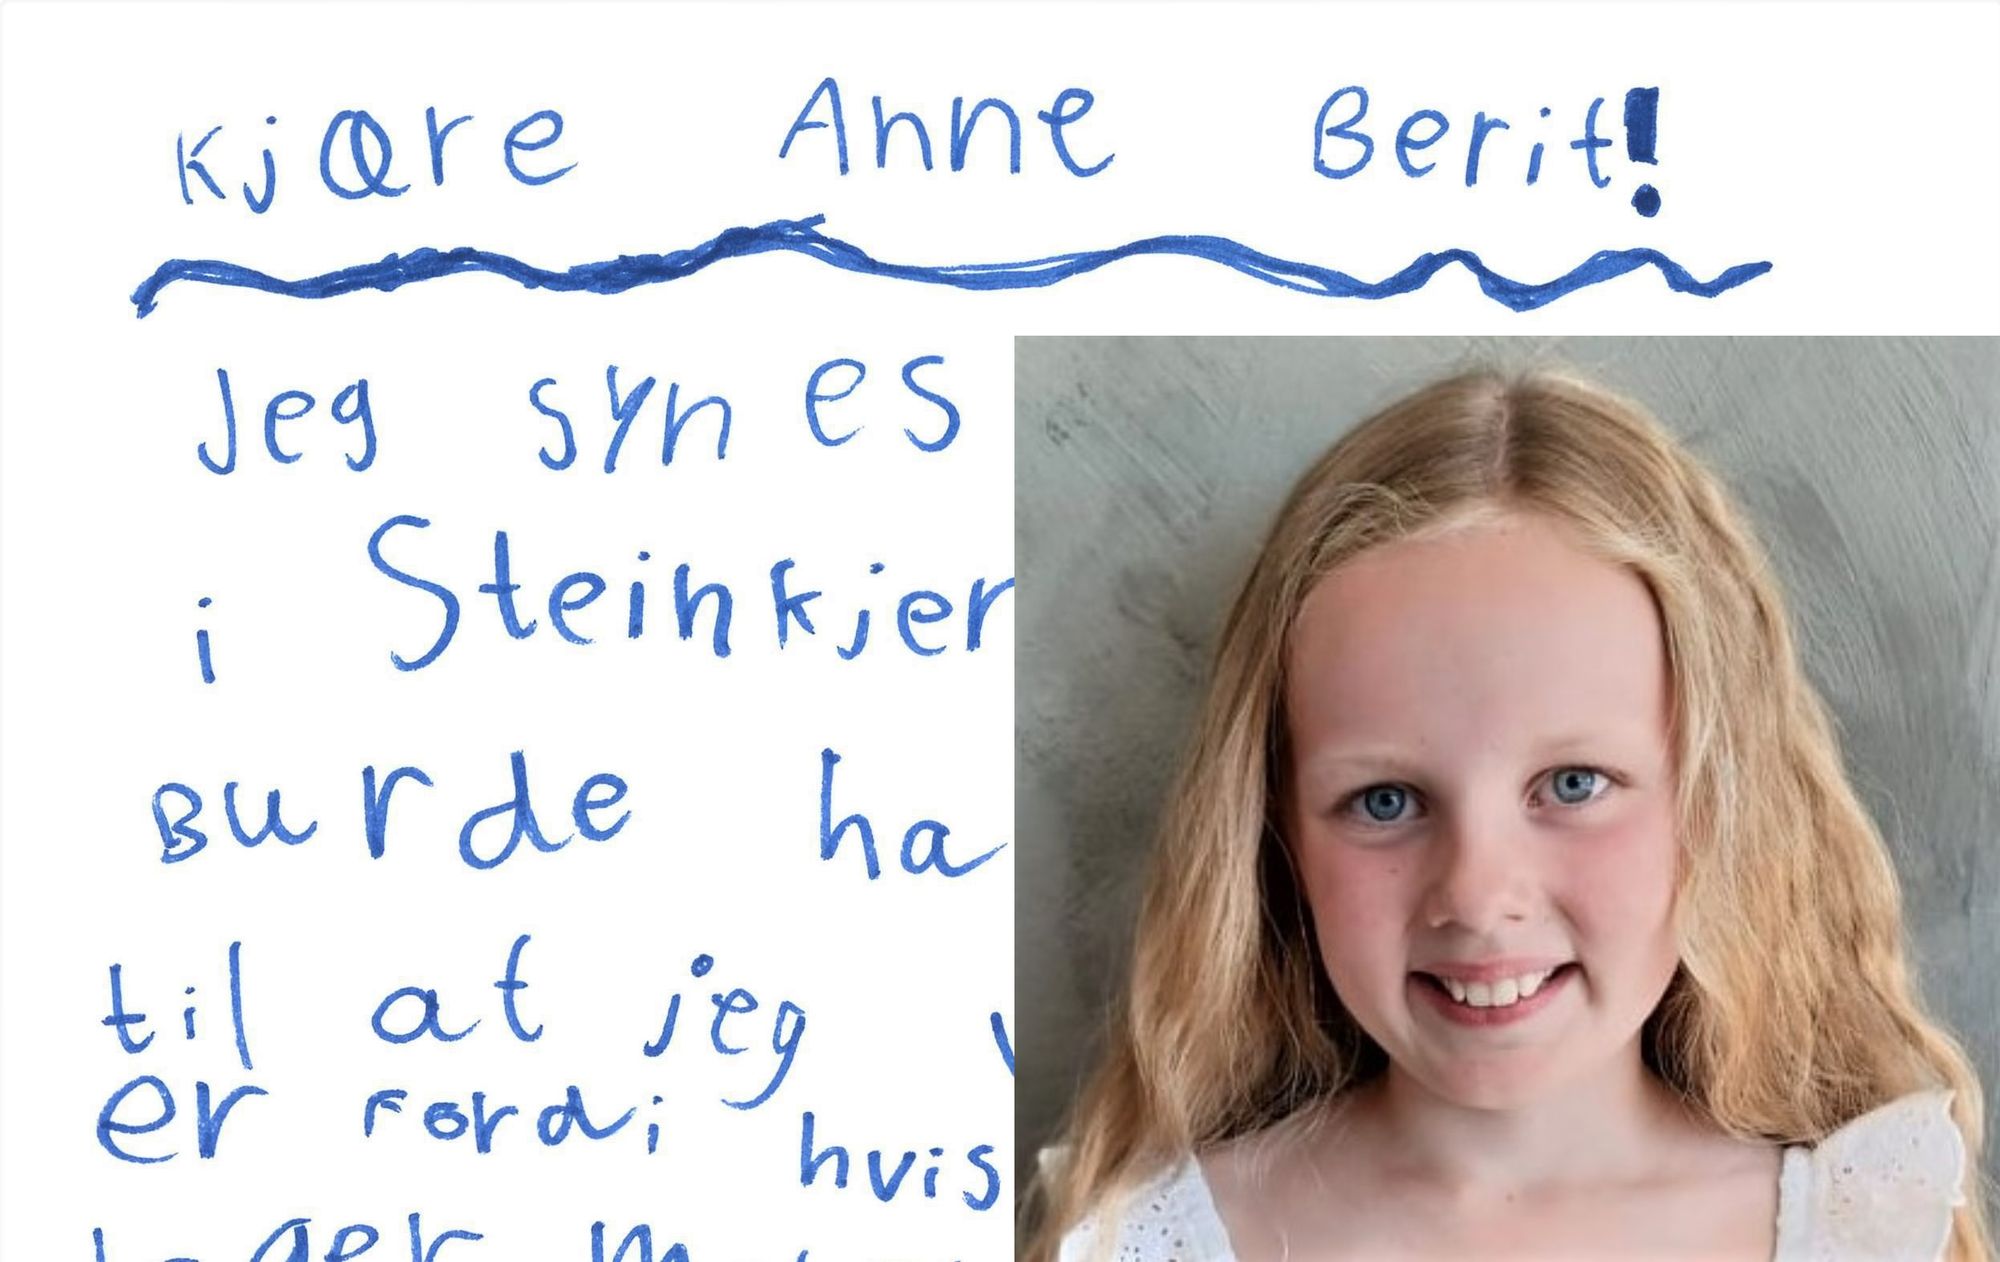 Kjære Anne Berit!
Jeg synes
i Steinkjer
Burde ha
til at jeg
er fordi hvis